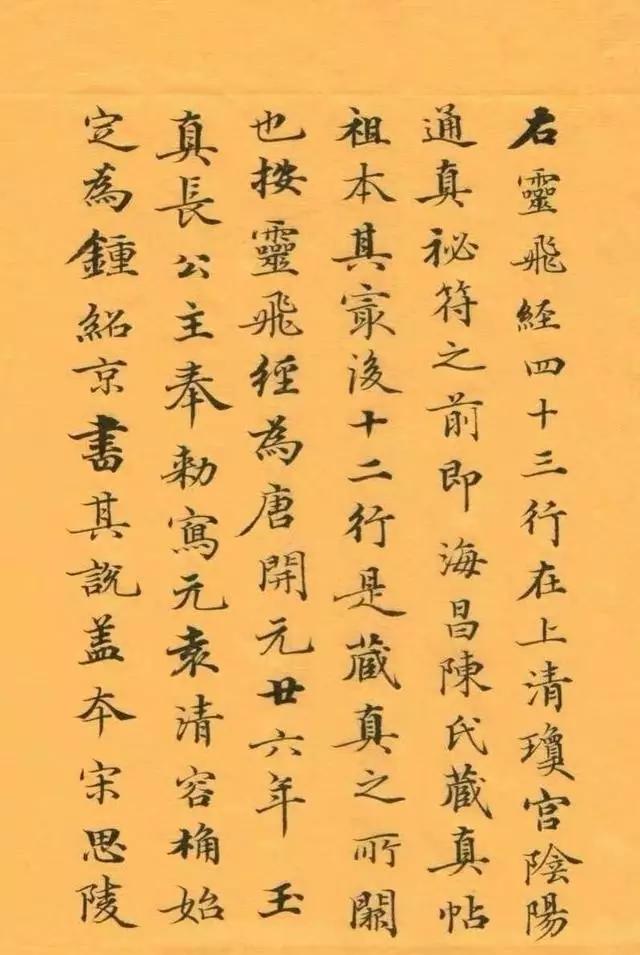 右靈飛经四十三行在上清瓊宫陰陽
通真祕符之前即海昌陳氏藏真帖
祖本其㝡後十二行是藏真之所闕
也按靈飛經為唐開元廿六年玉
真長公主奉勅寫元袁清容桷始
定為鍾紹京書其說盖本宋思陵